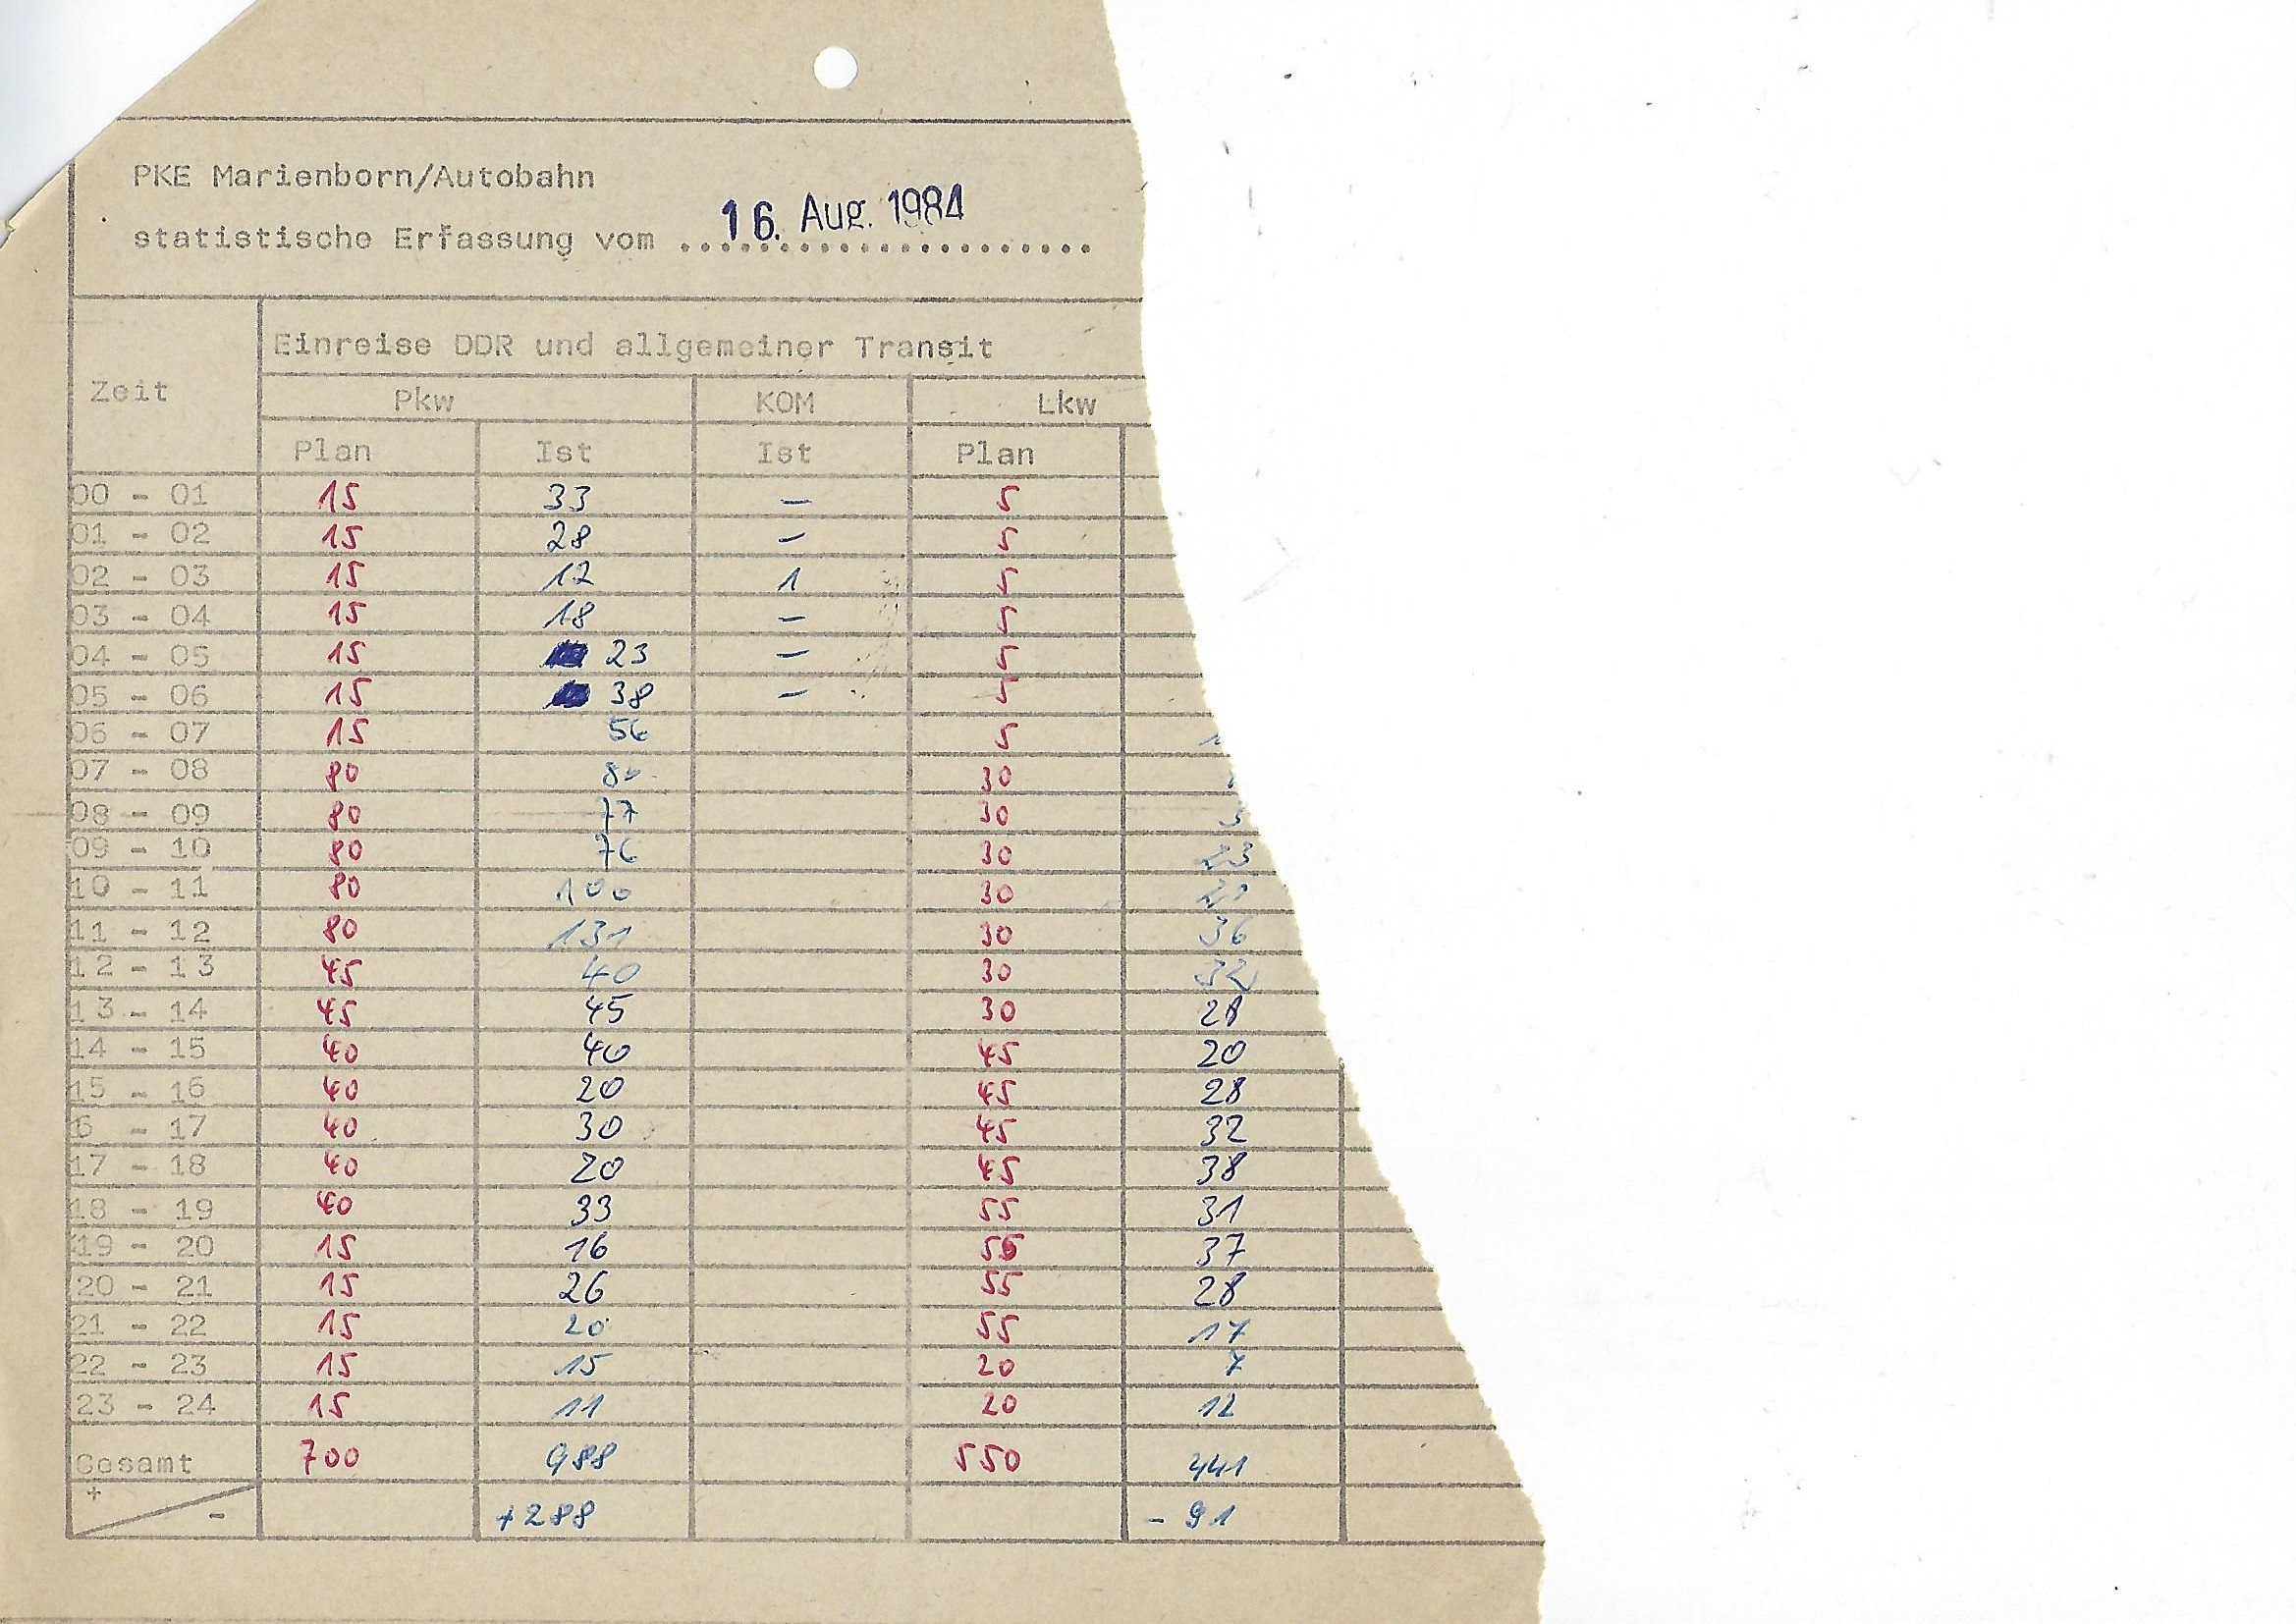 PKE Marienborn/Autobahn
statistische Erfassung vom 16. Aug. 1984
Einreise DDR und allgemeiner Transit
Zeit
Pkw KOM Lkw
Plan Ist Ist Plan
00 - 01 15 33 – 5
01 - 02 15 28 – 5
02 - 03 15 12 1 5
03 - 04 15 18 – 5
04 - 05 15 23 – 5
05 - 06 15 38 – 5
06 - 07 15 56 5
07 - 08 80 80 30
08 - 09 80 77 30
09 - 10 80 76 30 23
10 - 11 80 100 30
11 - 12 80 131 30 36
12 - 13 45 40 30 32
13 - 14 45 45 30 28
14 - 15 40 40 45 20
15 - 16 40 20 45 28
6 - 17 40 30 45 32
17 - 18 40 20 45 38
18 - 19 40 33 55 31
19 - 20 15 16 55 37
20 - 21 15 26 55 28
21 - 22 15 20 55 17
22 - 23 15 15 20 7
23 - 24 15 11 20 12
Gesamt 700 988 550 441
+ - +288 - 91